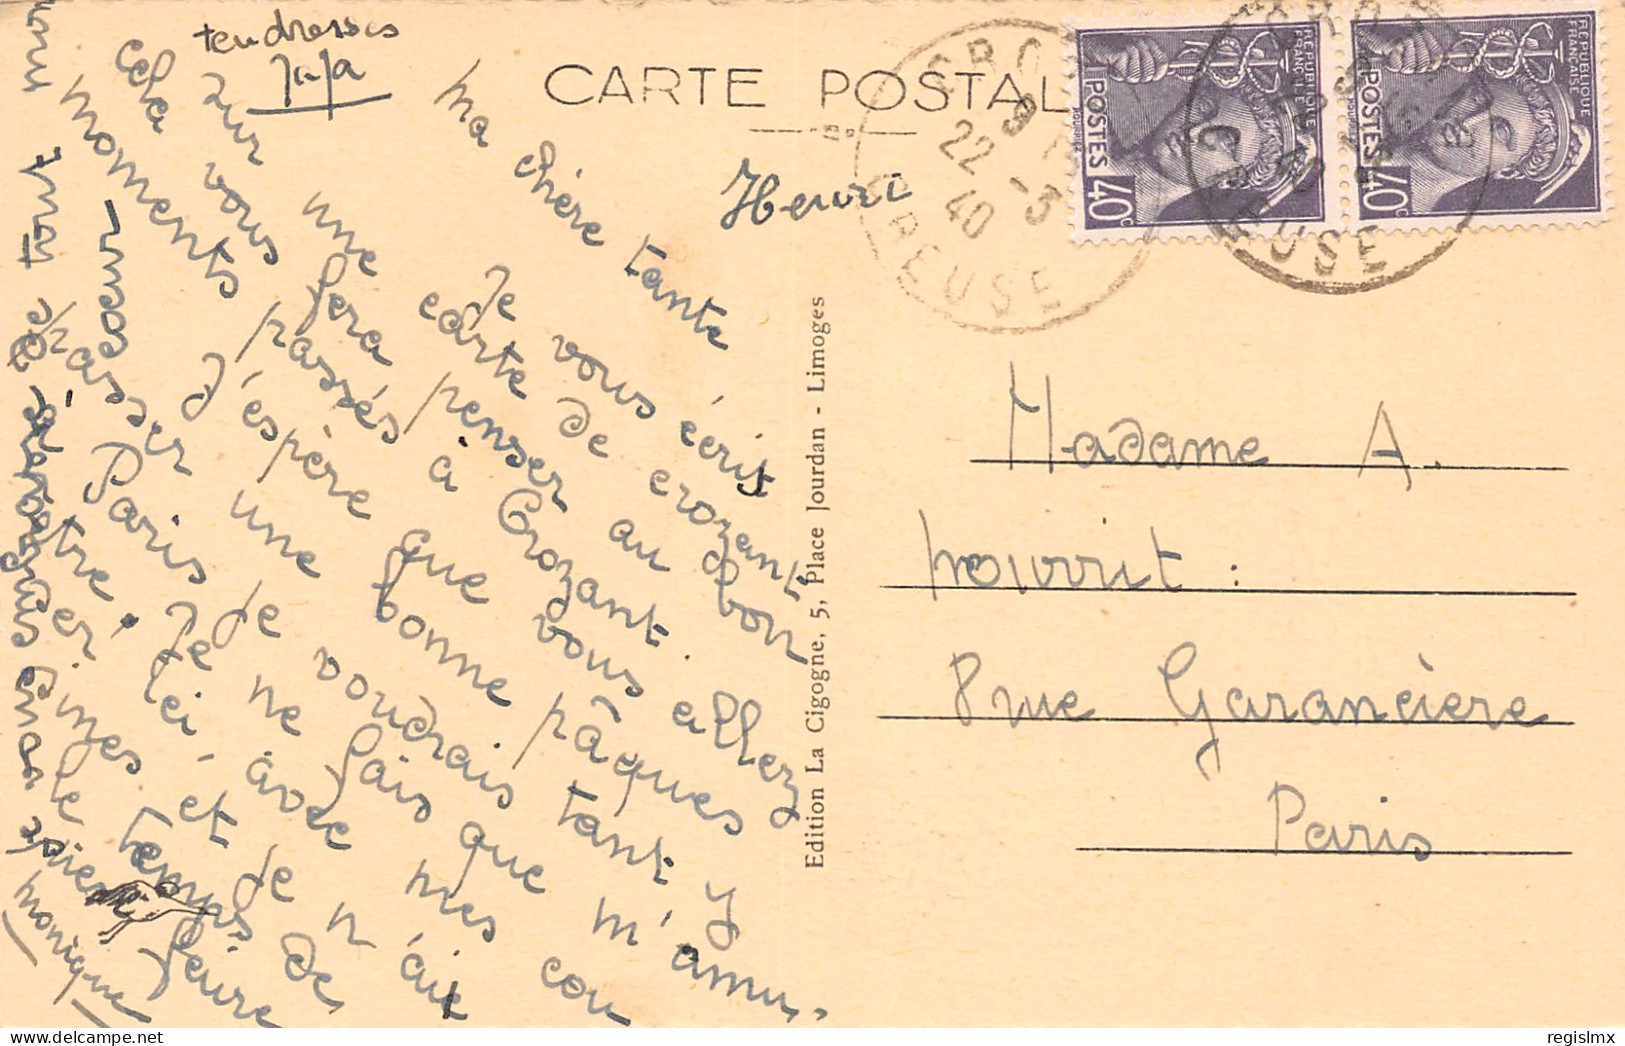 CARTE POSTAL
tendresses
Jaja
Henri
ma chère tante
Je vous écrit
sur une carte de crozant
cela vous fera penser au bon
moments passés à Crozant.
J'éspère que vous allez
passer une bonne pâques
à Paris je voudrais tant y
être. Je ne fais que m'amu-
ser ici, avec mes cou
sines et je n'ait
le temps de
écrire
vous embrasse de tout mon
coeur
monique
Edition La Cigogne, 5, Place Jourdan - Limoges
CRO
9
22 -3
40
CREUSE
REPUBLIQUE FRANÇAISE
POSTES 40c
REPUBLIQUE FRANÇAISE
POSTES 40c
EUSE
Madame A.
nourrit :
8 rue Garancière
Paris
regislmx